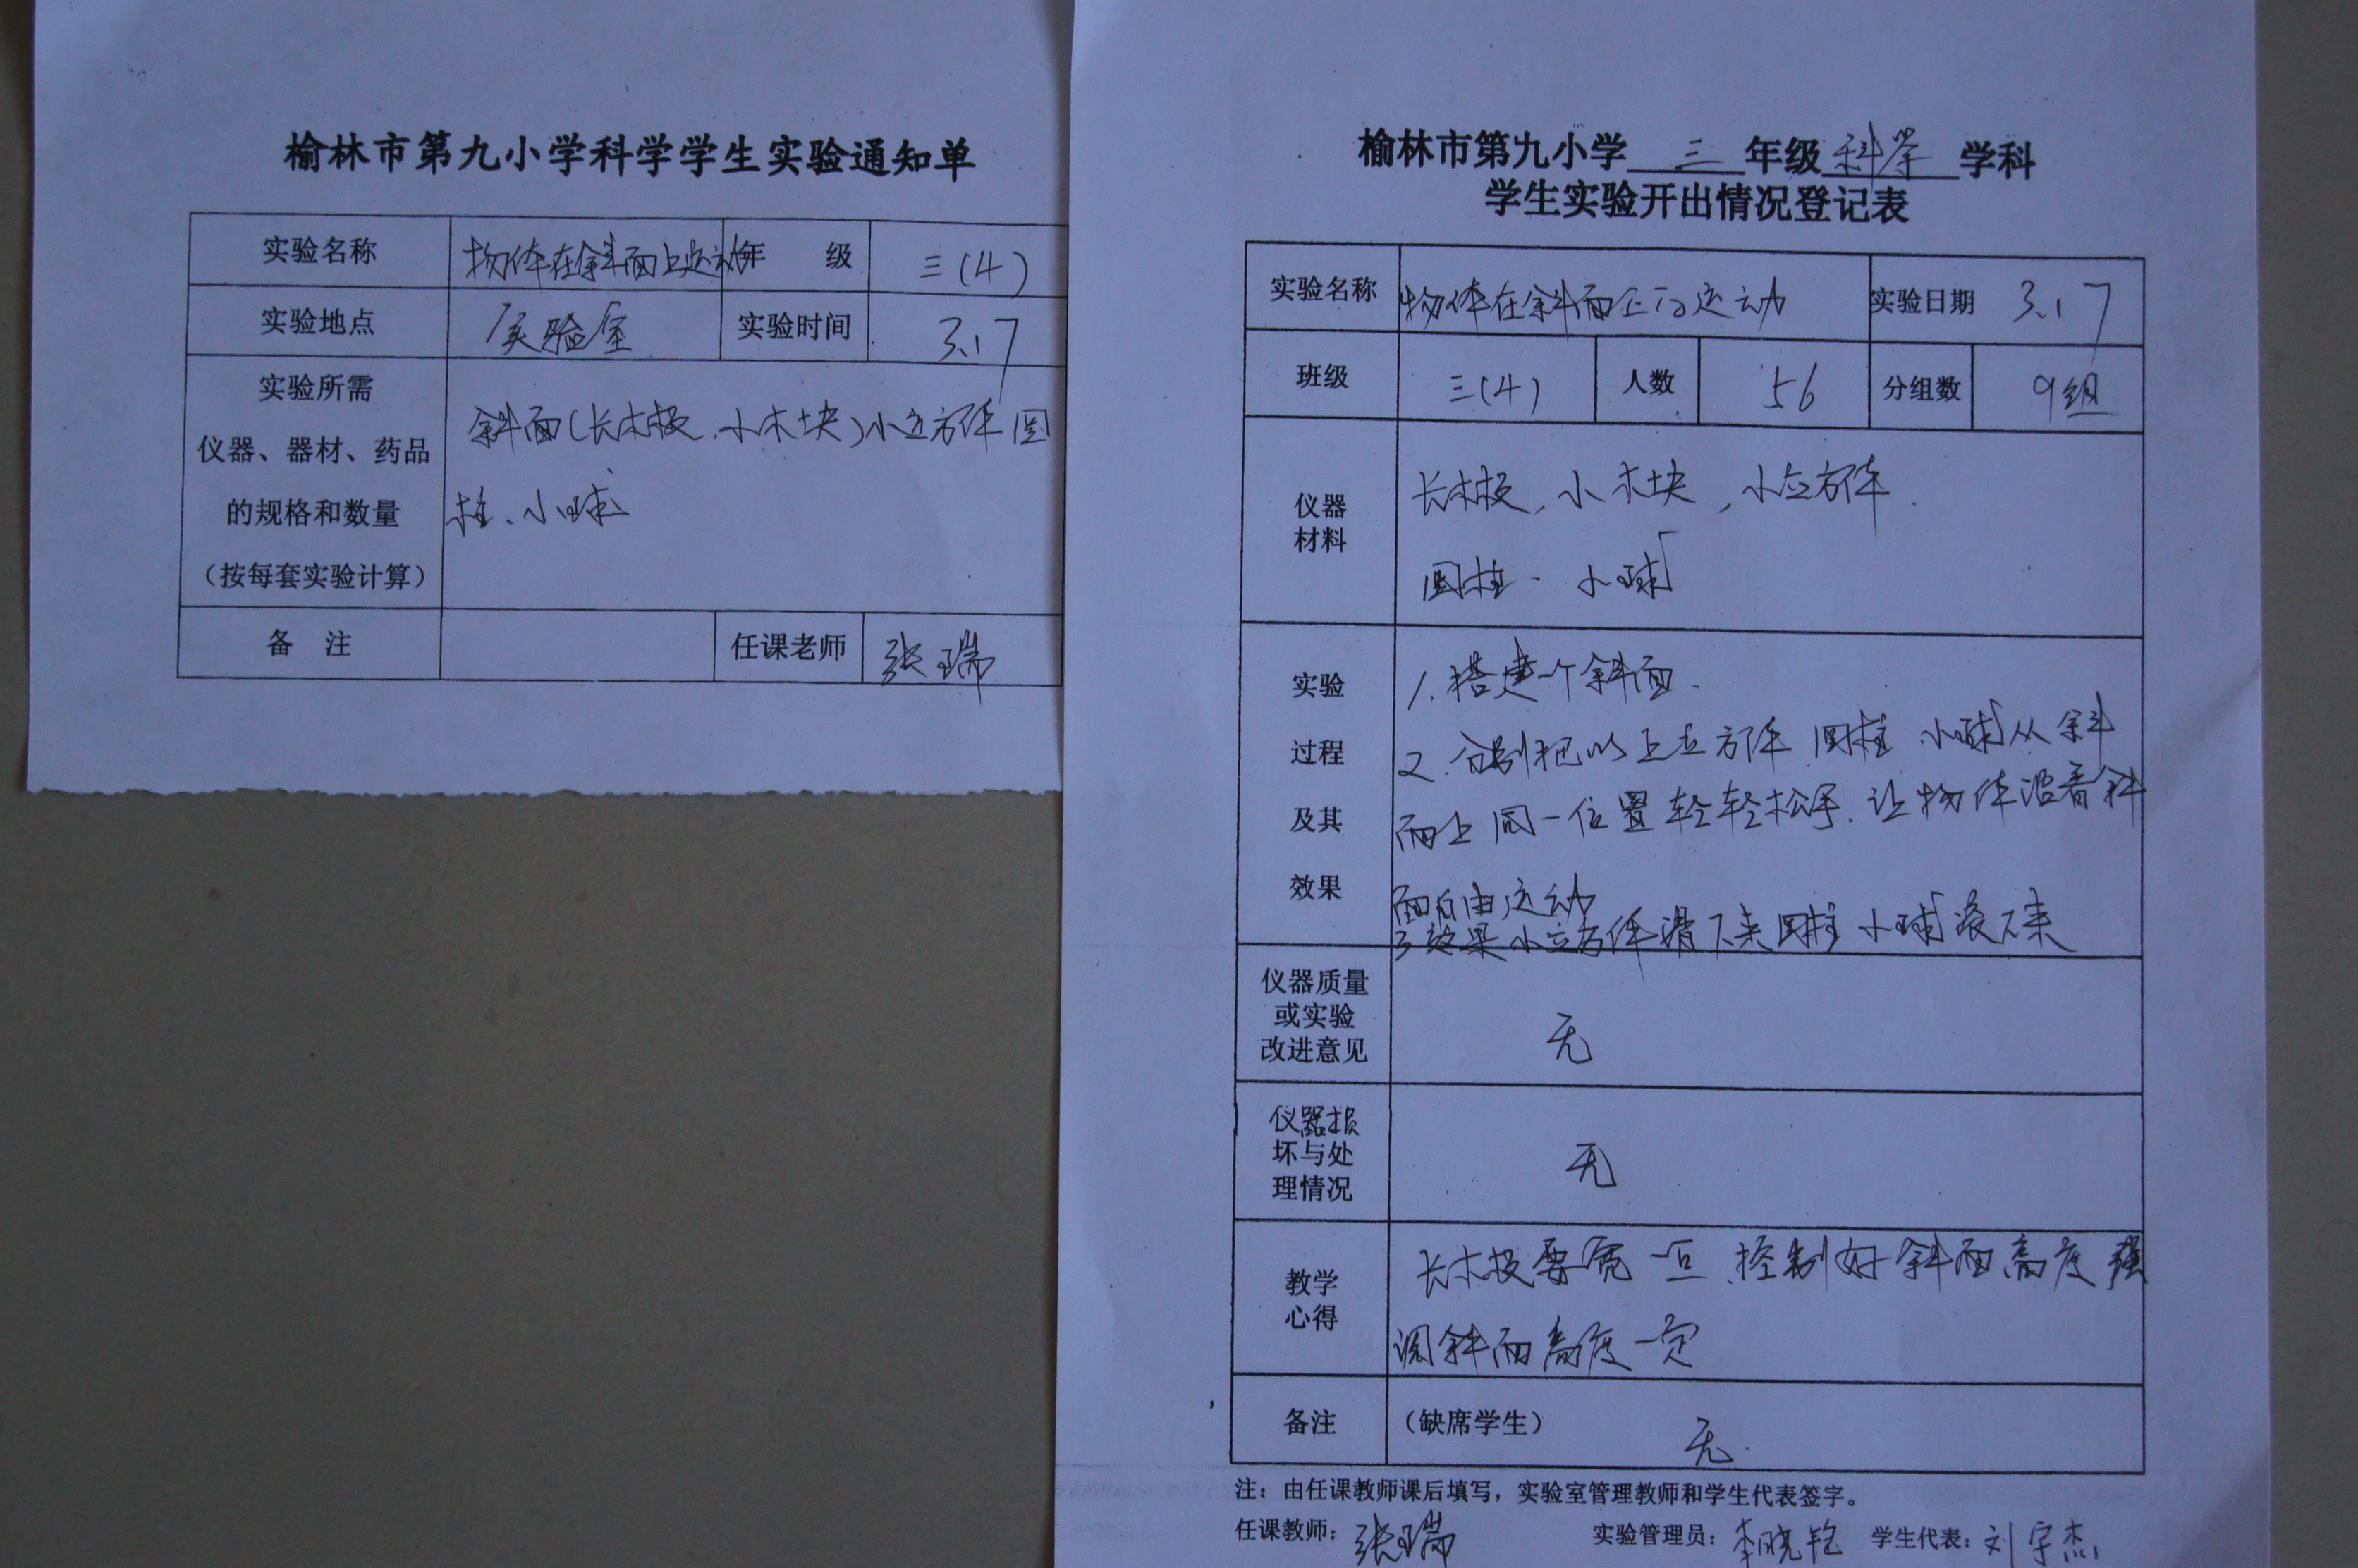 榆林市第九小学科学学生实验通知单
实验名称 物体在斜面上运动 年 级 三(4)
实验地点 实验室 实验时间 3.17
实验所需
仪器、器材、药品
的规格和数量
(按每套实验计算)
斜面(长木板、小木块)小立方体 圆
柱、小球
备 注 任课老师 张瑞
榆林市第九小学 三 年级 科学 学科
学生实验开出情况登记表
实验名称 物体在斜面上的运动 实验日期 3.17
班级 三(4) 人数 56 分组数 9组
仪器
材料
长木板,小木块,小立方体.
圆柱、小球
实验
过程
及其
效果
1.搭建一个斜面.
2.分别把以上立方体 圆柱 小球从斜
面上同一位置轻轻松手.让物体沿着斜
面自由运动
3 效果 小立方体滑下来 圆柱 小球滚下来
仪器质量
或实验
改进意见
无
仪器损
坏与处
理情况
无
教学
心得
长木板要宽一点 控制好斜面高度 强
调斜面高度一定
备注 (缺席学生) 无.
注:由任课教师课后填写,实验室管理教师和学生代表签字。
任课教师:张瑞 实验管理员:李晓艳 学生代表:刘宇杰